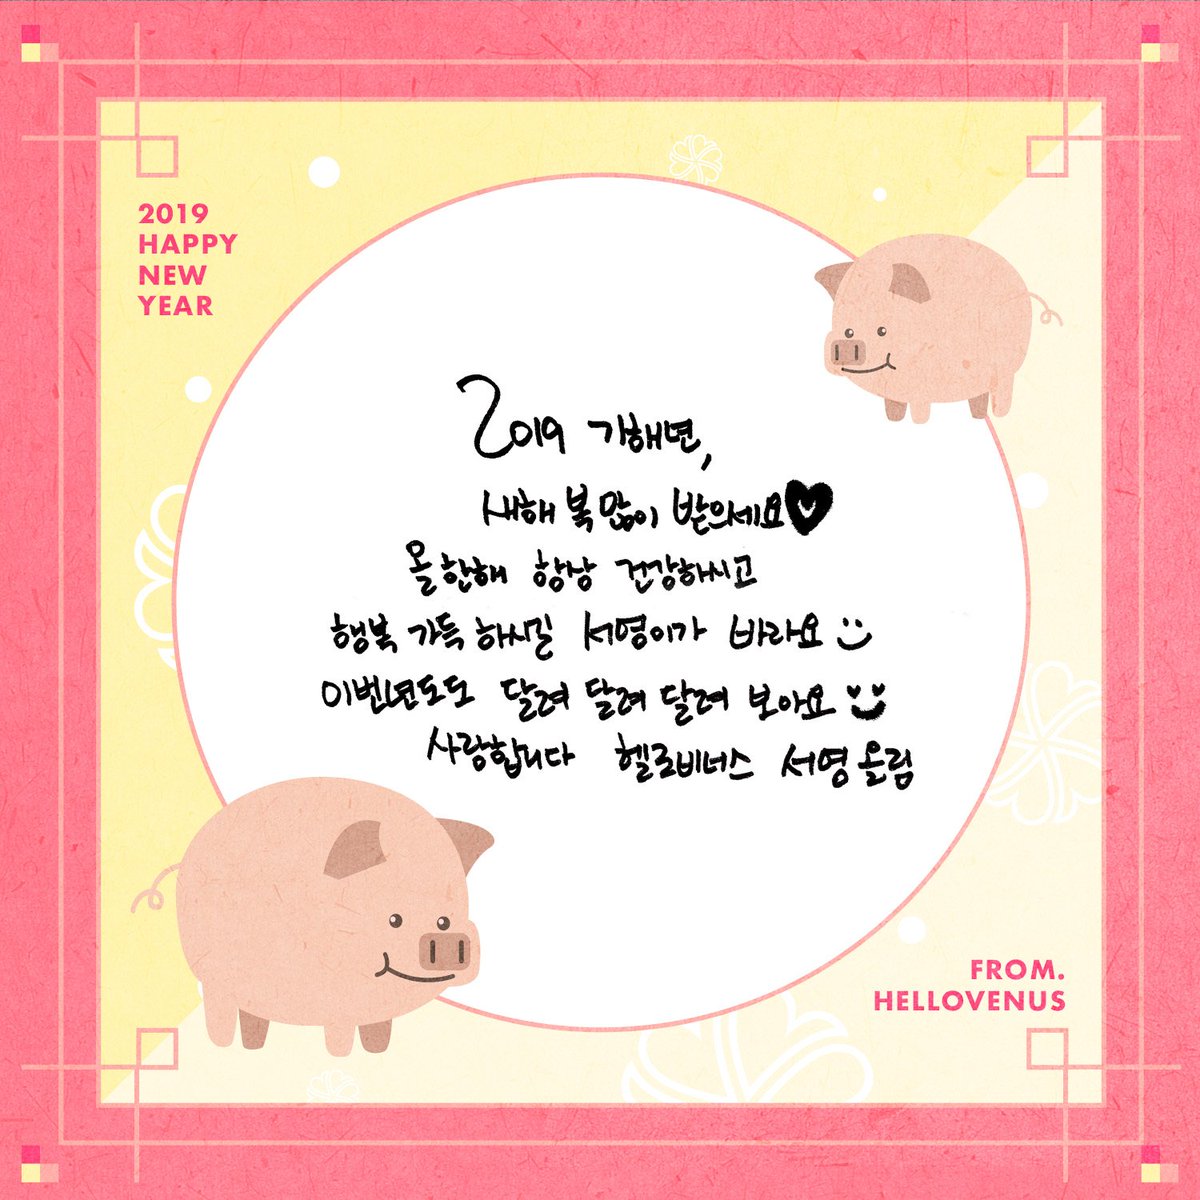 2019
HAPPY
NEW
YEAR
2019 기해년,
새해 복 많이 받으세요♥
올 한해 항상 건강하시고
행복 가득 하시길 서영이가 바라요
이번년도도 달려 달려 달려 보아요
사랑합니다 헬로비너스 서영 올림
FROM.
HELLOVENUS